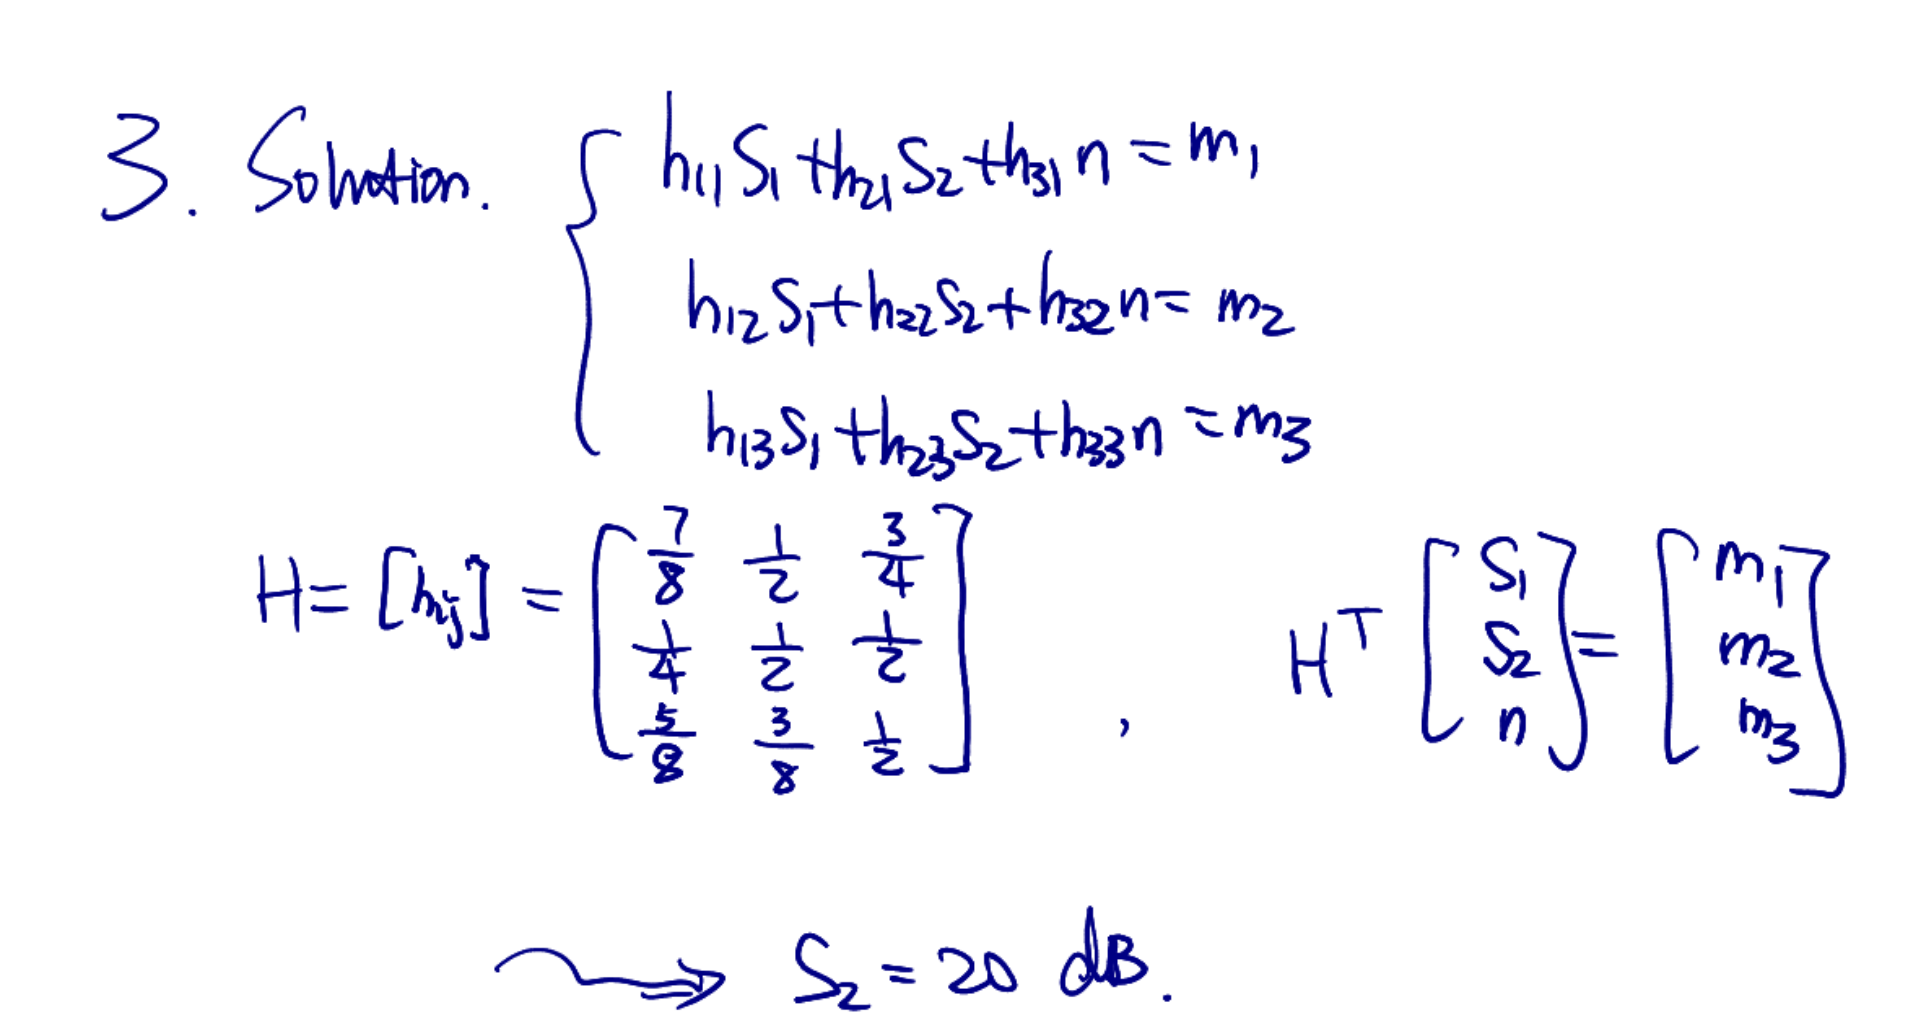 3. Solution. { h₁₁S₁+h₂₁S₂+h₃₁n=m₁
h₁₂S₁+h₂₂S₂+h₃₂n=m₂
h₁₃S₁+h₂₃S₂+h₃₃n=m₃
H=[hᵢⱼ]=[7/8 1/2 3/4; 1/4 1/2 1/2; 5/8 3/8 1/2], Hᵀ[S₁; S₂; n]=[m₁; m₂; m₃]
⇝ S₂=20 dB.